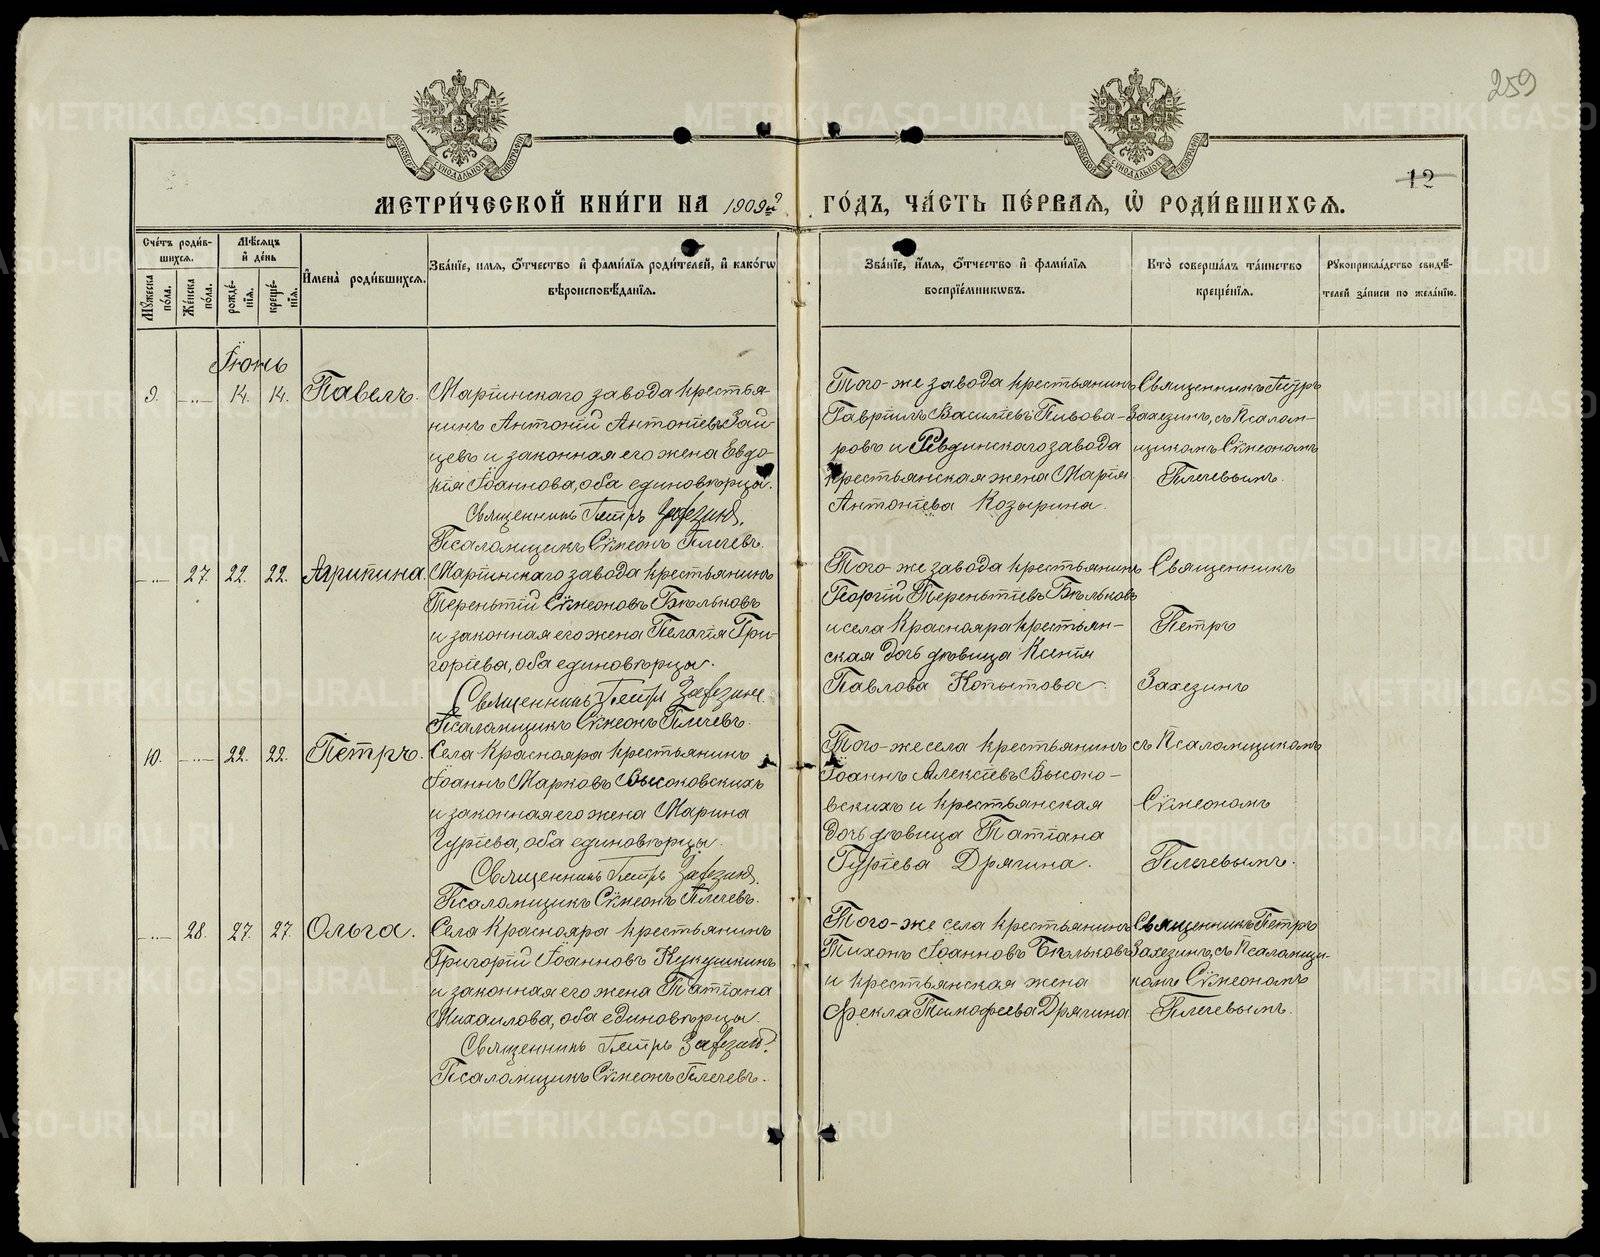 259
12
МЕТРИЧЕСКОЙ КНИГИ НА 1909й ГОДЪ, ЧАСТЬ ПЕРВАЯ, Ѡ РОДИВШИХСЯ.
Счетъ родив-
шихся.
Мѣсяцъ
и день
Мужеска
пола.
Женска
пола.
рожде-
нія.
креще-
нія.
Имена родившихся.
Званіе, имя, отчество и фамилія родителей, и какогѡ
вѣроисповѣданія.
Званіе, имя, отчество и фамилія
воспріемниковъ.
Кто совершалъ таинство
крещенія.
Рукоприкладство свидѣ-
телей записи по желанію.
Іюнь
9. 14. 14. Павелъ.
Маріинскаго завода крестья-
нинъ Антоній Антоніевъ Зай-
цевъ и законная его жена Евдо-
кія Іоаннова, оба единовѣрцы.
Священникъ Петръ Захезинъ.
Псаломщикъ Сѵмеонъ Плечевъ.
Того-же завода крестьянинъ
Гавріилъ Василіевъ Пивова-
ровъ и Ревдинскаго завода
крестьянская жена Марія
Антоніева Козырина.
Священникъ Петръ
Захезинъ, съ Псалом-
щикомъ Сѵмеономъ
Плечевымъ.
27. 22. 22. Агрипина.
Маріинскаго завода крестьянинъ
Терентій Сѵмеоновъ Бѣльковъ
и законная его жена Пелагія Гри-
горіева, оба единовѣрцы.
Священникъ Петръ Захезинъ.
Псаломщикъ Сѵмеонъ Плечевъ.
Того-же завода крестьянинъ
Георгій Терентіевъ Бѣльковъ
и села Краснояра крестьян-
ская дочь дѣвица Ксенія
Павлова Копытова.
Священникъ
Петръ
Захезинъ
10. 22. 22. Петръ.
Села Краснояра крестьянинъ
Іоаннъ Марковъ Высоковскихъ
и законная его жена Марина
Гуріева, оба единовѣрцы.
Священникъ Петръ Захезинъ.
Псаломщикъ Сѵмеонъ Плечевъ.
Того-же села крестьянинъ
Іоаннъ Алексіевъ Высоко-
вскихъ и крестьянская
дочь дѣвица Татіана
Гуріева Дрягина.
съ Псаломщикомъ
Сѵмеономъ
Плечевымъ.
28. 27. 27. Ольга.
Села Краснояра крестьянинъ
Григорій Іоанновъ Кукушкинъ
и законная его жена Татіана
Михаилова, оба единовѣрцы.
Священникъ Петръ Захезинъ.
Псаломщикъ Сѵмеонъ Плечевъ.
Того-же села крестьянинъ
Тихонъ Іоанновъ Бѣльковъ
и крестьянская жена
Фекла Тимофеева Дрягина
Священникъ Петръ
Захезинъ, съ Псаломщи-
комъ Сѵмеономъ
Плечевымъ.
METRIKI.GASO-URAL.RU